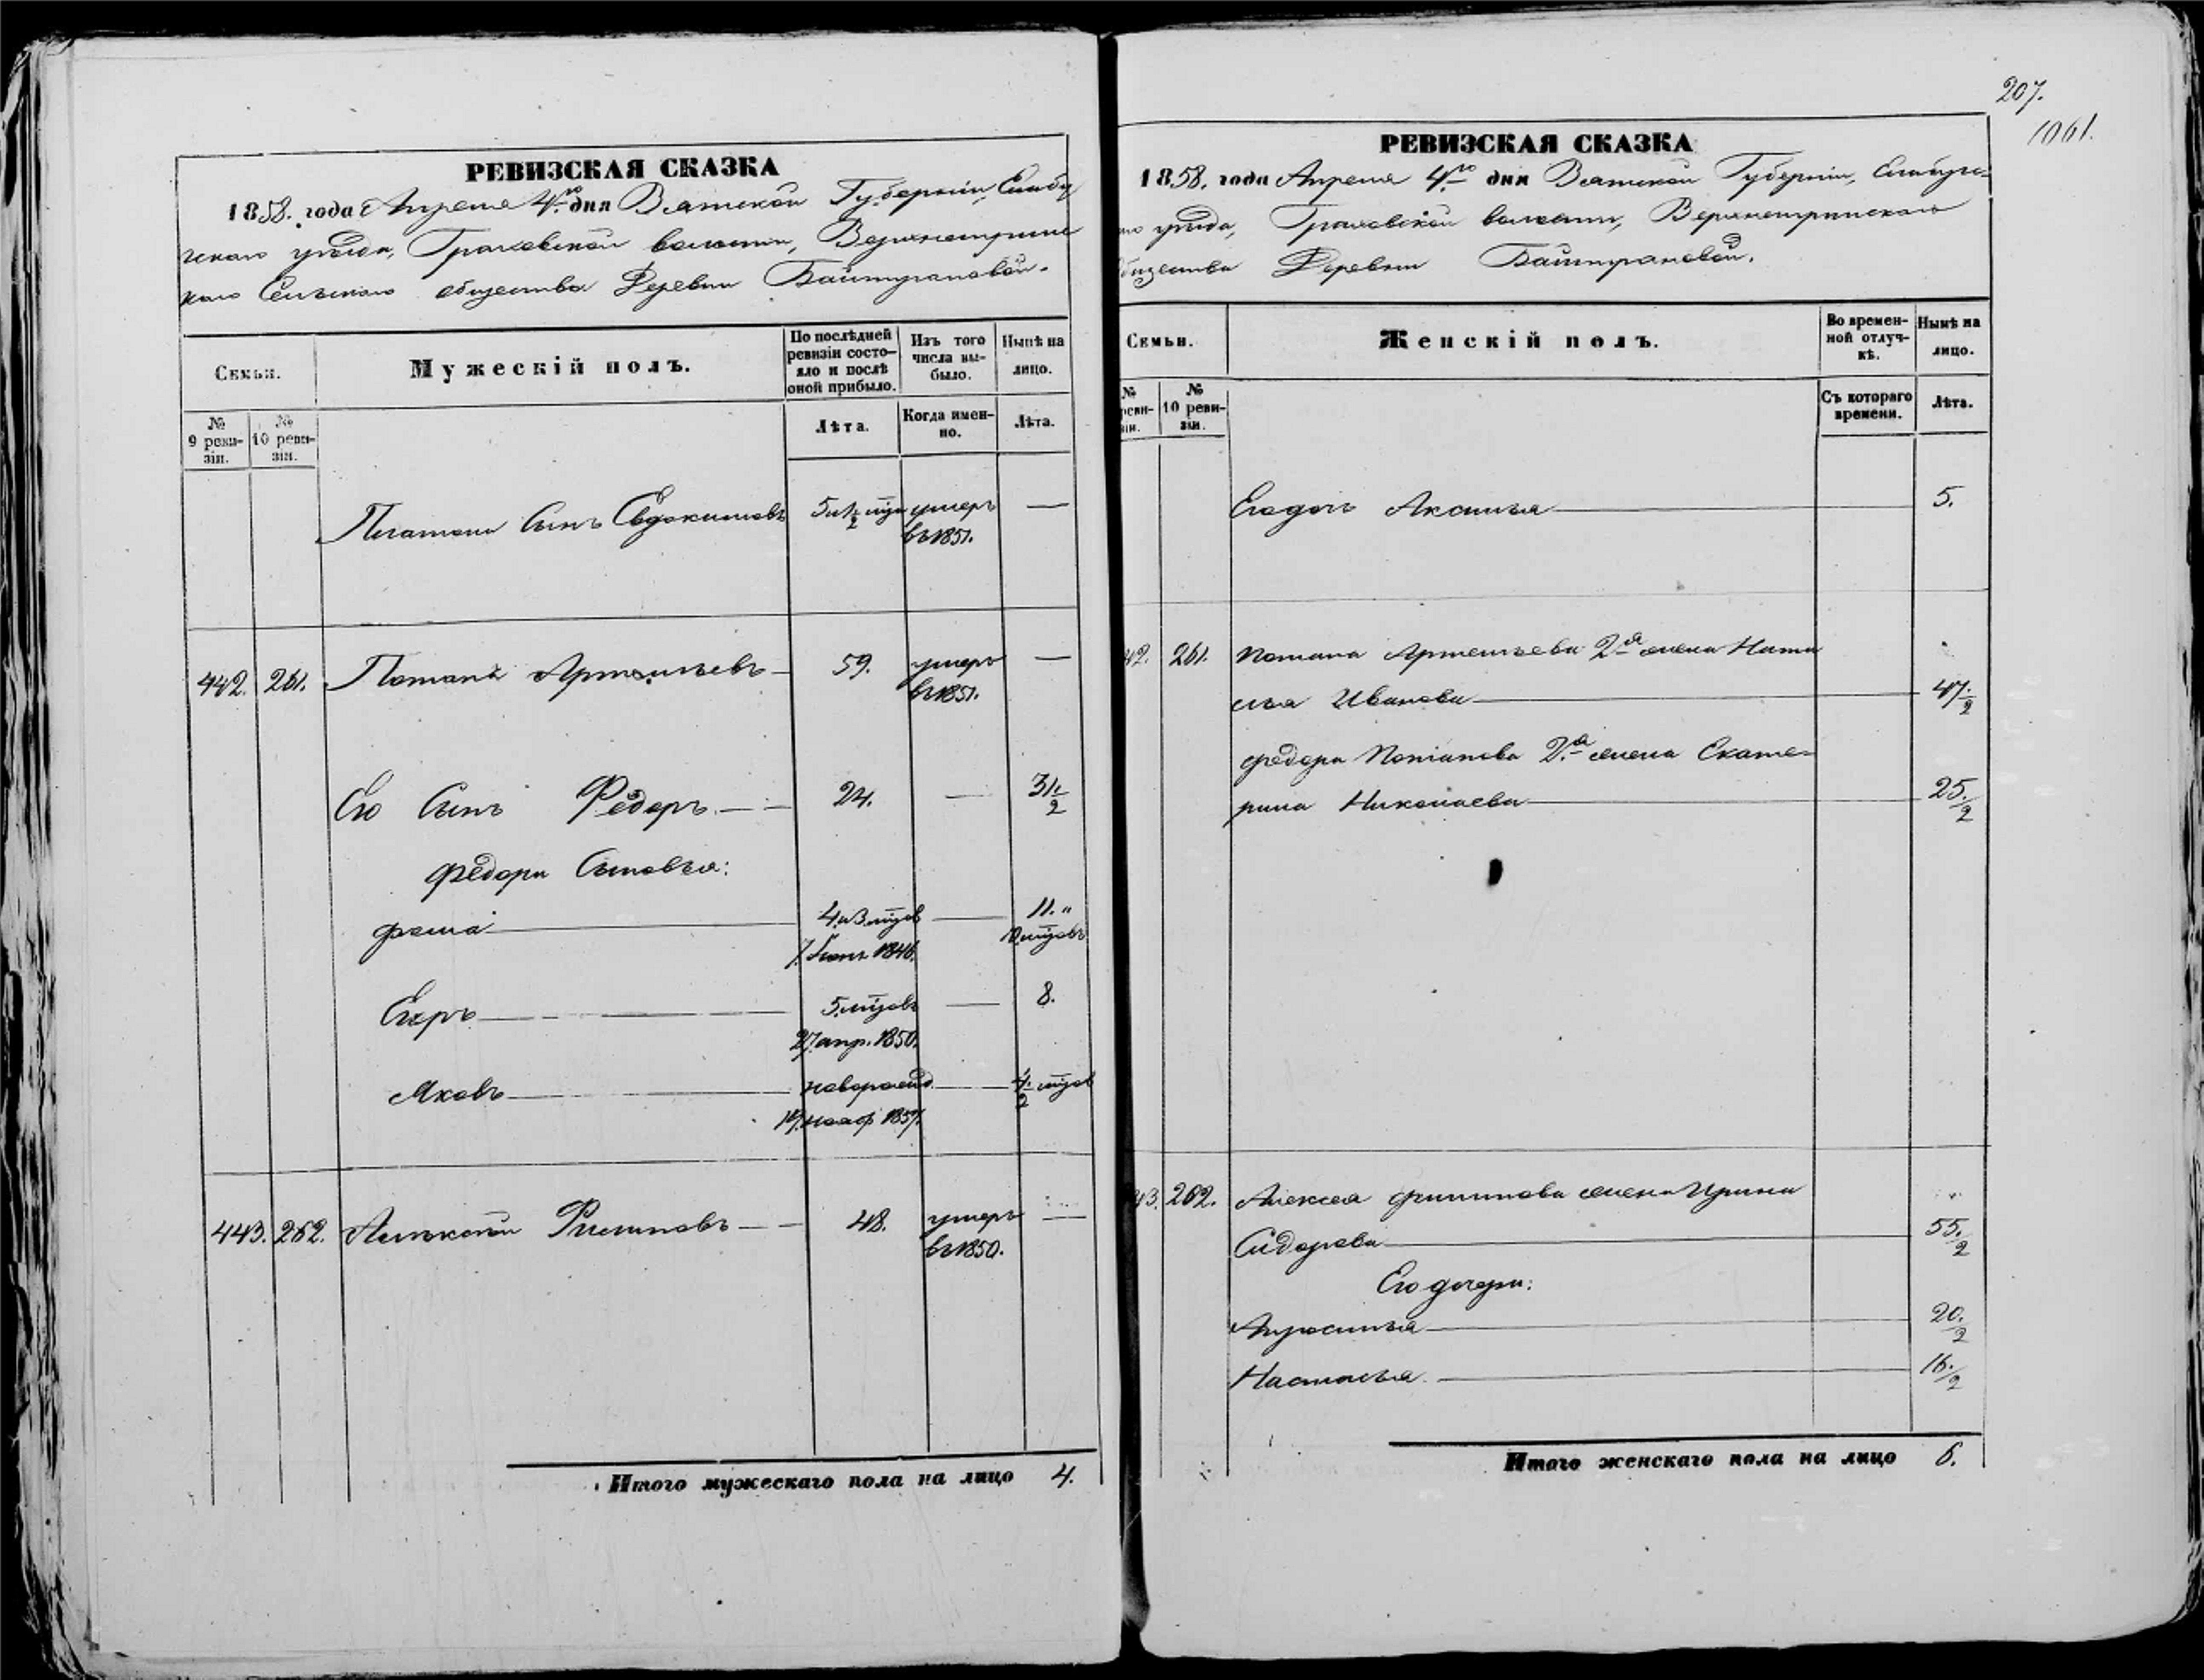 207.
1061.
РЕВИЗСКАЯ СКАЗКА
1858. года Апреля 4го дня Вятской Губерніи, Елабу
гскаго уѣзда, Граховской волости, Верхнетрыйс
каго Сельскаго общества Деревни Байтурановой.
Семьи.
Мужескій полъ.
По послѣдней ревизіи состояло и послѣ оной прибыло.
Изъ того числа выбыло.
Нынѣ на лицо.
№ 9 ревизіи.
№ 10 ревизіи.
Лѣта.
Когда именно.
Лѣта.
Платонъ Сынъ Евдокимовъ 5 и ½ умеръ —
въ 1851.
442. 261. Потапъ Артемьевъ — 59. умеръ —
въ 1851.
Его Сынъ Федоръ — 24. — 31 ½
Федора Сыновья:
Фома — 4 и 3 мѣцов — 11. "
7. 1846. мѣцовъ
Егоръ — 5. мѣцовъ — 8.
27. апр. 1850.
Яковъ — новорожд — 4 ½ мѣцов
нояб 1857.
443. 262. Алексѣй Филиповъ — 48. умеръ —
въ 1850.
Итого мужескаго пола на лицо 4.
РЕВИЗСКАЯ СКАЗКА
1858. года Апреля 4го дня Вятской Губерніи, Елабугс-
каго уѣзда, Граховской волости, Верхнетрыйскаго
общества Деревни Байтурановой.
Семьи.
Женскій полъ.
Во временной отлучкѣ.
Нынѣ на лицо.
№ ревизіи.
№ 10 ревизіи.
Съ котораго времени.
Лѣта.
Его дочь Аксинья — 5.
42. 261. Потапа Артемьева 2я жена Ната
лья Иванова — 47 ½
Федора Потапова 2я жена Екате-
рина Николаева — 25 ½
43. 262. Алексея Филипова жена Ирина
Сидорова — 55 ½
Его дочери:
Апросинья — 20 ½
Настасья — 16 ½
Итого женскаго пола на лицо 6.